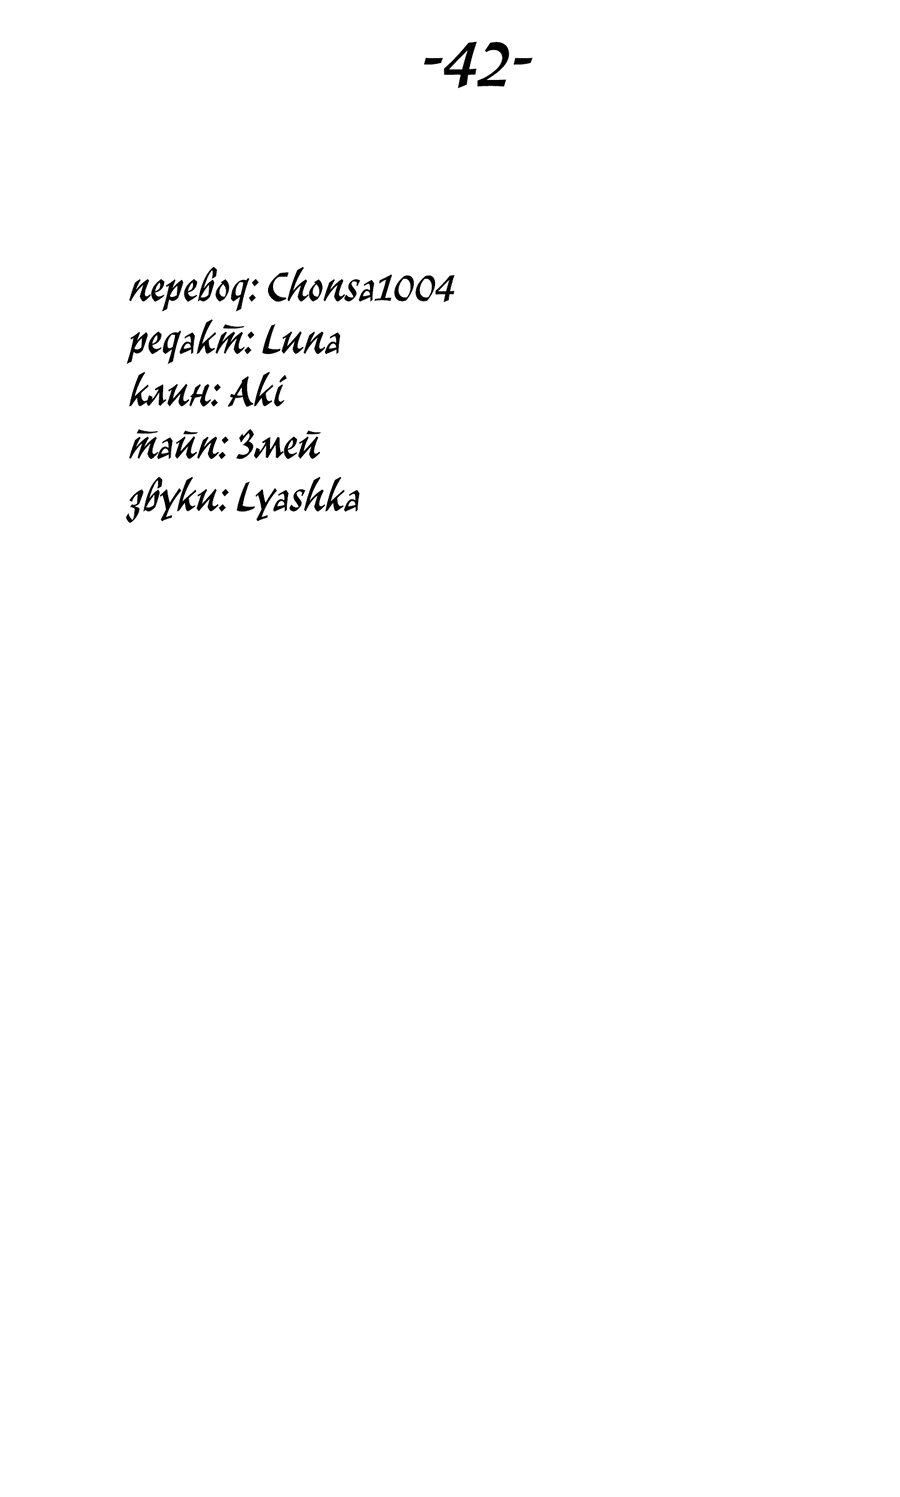 -42-
перевод: Chonsa1004
редакт: Luna
клин: Aki
тайп: Змей
звуки: Lyashka